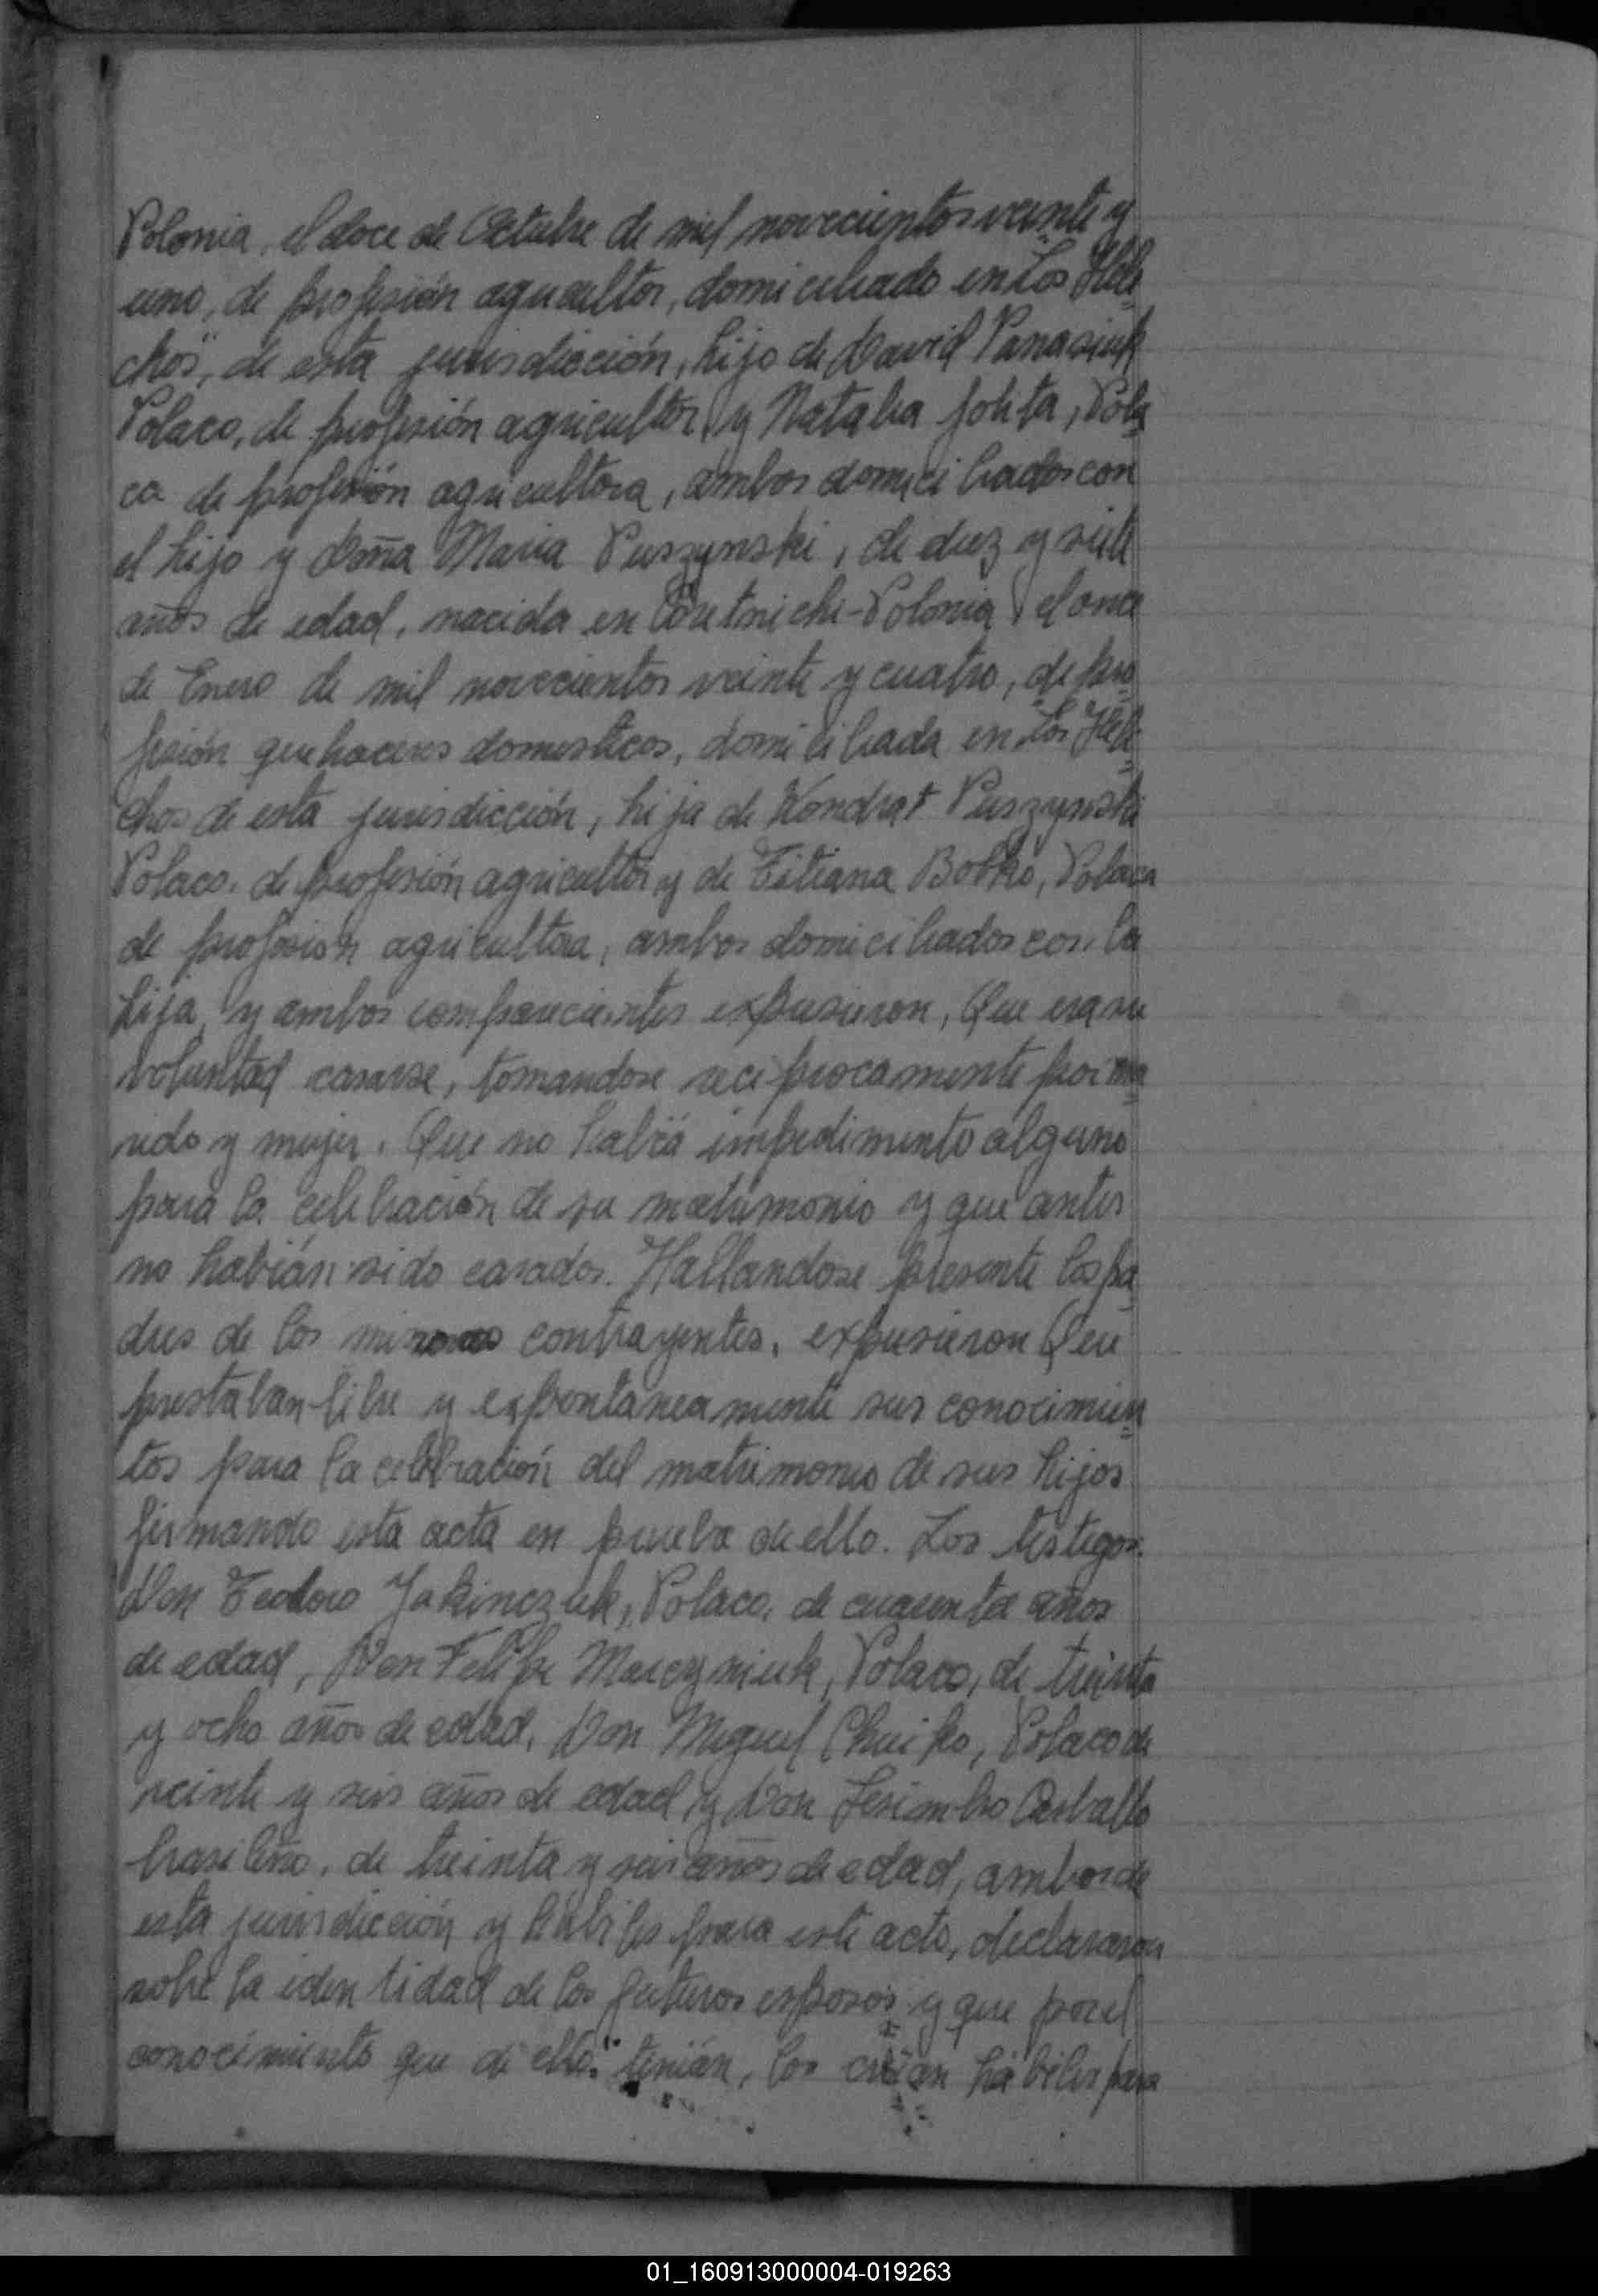 Polonia, el doce de Octubre de mil novecientos veinte y
uno, de profesión agricultor, domiciliado en "Los Hele
chos", de esta jurisdicción, hijo de David Panasiuk
Polaco, de profesión agricultor y Natalia Jolita, Pola
ca de profesión agricultora, ambos domiciliados con
el hijo y doña Maria Puszynski, de diez y siete
años de edad, nacida en -Polonia el once
de Enero de mil novecientos veinte y cuatro, de pro
fesión quehaceres domesticos, domiciliada en "Los Hele
chos de esta jurisdicción, hija de Kondrat Puszynski
Polaco, de profesión agricultor y de Titiana Botko, Polaca
de profesion agricultora, ambos domiciliados con la
hija, y ambos comparecientes expusieron, Que era su
voluntad casarse, tomandose reciprocamente por ma
rido y mujer. Que no habiá impedimento alguno
para la celebración de su matrimonio y que antes
no habián sido casados. Hallandose presente los pa
dres de los contrayentes, expusieron Que
prestaban libre y espontaneamente sus conocimien
tos para la celebración del matrimonio de sus hijos
firmando esta acta en prueba de ello. Los testigos.
Don Teodoro Jakinczuk, Polaco, de cuarenta años
de edad, Don Felipe Marczyniuk, Polaco, de treinta
y ocho años de edad, Don Miguel Chuiko, Polaco de
veinte y seis años de edad y Don Carballo
brasileño, de treinta y seis años de edad, ambos de
esta jurisdicción y hábiles para este acto, declararon
sobre la identidad de los futuros esposos y que por el
conocimiento que de ellos tenián, los creian hábiles para
01_160913000004-019263